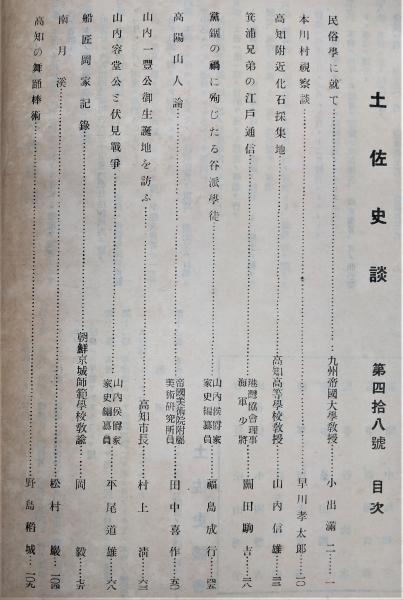 土佐史談　第四拾八號　目次
民俗學に就て……九州帝國大學敎授…小出滿二…一
本川村視察談……早川孝太郎…二〇
高知附近化石採集地……高知高等學校敎授…山內信雄…三三
箕浦兄弟の江戶通信……港灣協會理事 海軍少將…關田駒吉…三八
黨錮の禍に殉じたる谷派學徒……山內侯爵家 家史編纂員…福島成行…四五
高陽山人論……帝國美術院附屬 美術硏究所員…田中喜作…五〇
山內一豐公御生誕地を訪ふ……高知市長…村上淸…六三
山內容堂公と伏見戰爭……山內侯爵家 家史編纂員…平尾道雄…六八
船匠岡家記錄……朝鮮京城師範學校敎諭…岡毅…七五
南月溪……松村巖…一〇四
高知の舞踊棒術……野島稻城…一〇九